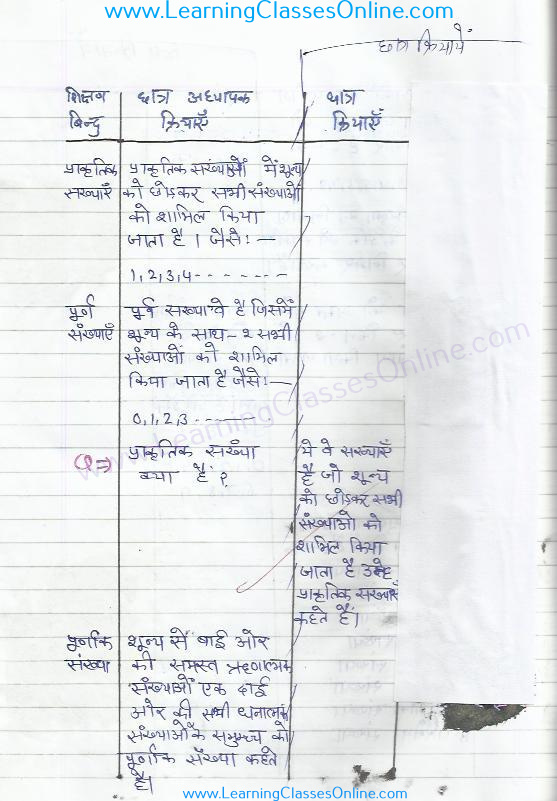 www.LearningClassesOnline.com
छात्र क्रियायें
शिक्षण बिन्दु
छात्र अध्यापक क्रियाएँ
छात्र क्रियाएँ
प्राकृतिक
संख्याएँ
प्राकृतिक संख्याओं में शून्य
को छोड़कर सभी संख्याओं
को शामिल किया
जाता है । जैसे:—
1,2,3,4- - - - - - -
पूर्ण
संख्याएँ
पूर्ण संख्या वे है जिसमें
शून्य के साथ-2 सभी
संख्याओं को शामिल
किया जाता है जैसे:—
0,1,2,3- - - - - -
Q⇒
प्राकृतिक संख्या
क्या है ?
ये वे संख्याएँ
है जो शून्य
को छोड़कर सभी
संख्याओं को
शामिल किया
जाता है उन्हे
प्राकृतिक संख्याएँ
कहते हैं।
पूर्णांक
संख्या
शून्य से बाई ओर
की समस्त ऋणात्मक
संख्याओं एक दाई
ओर की सभी धनात्मक
संख्याओं के समुच्च को
पूर्णांक संख्या कहते
है।
www.LearningClassesOnline.com
www.LearningClassesOnline.com